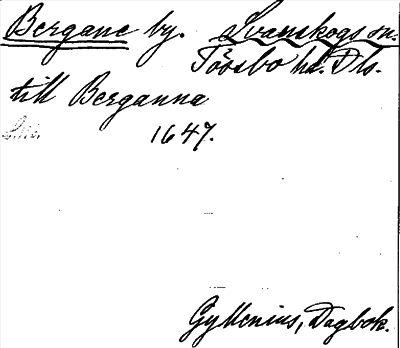 Bergane by. Svanskogs sn.
Tössbo hd. Dls.
till Berganna
1647.
Gyllenius, Dagbok.